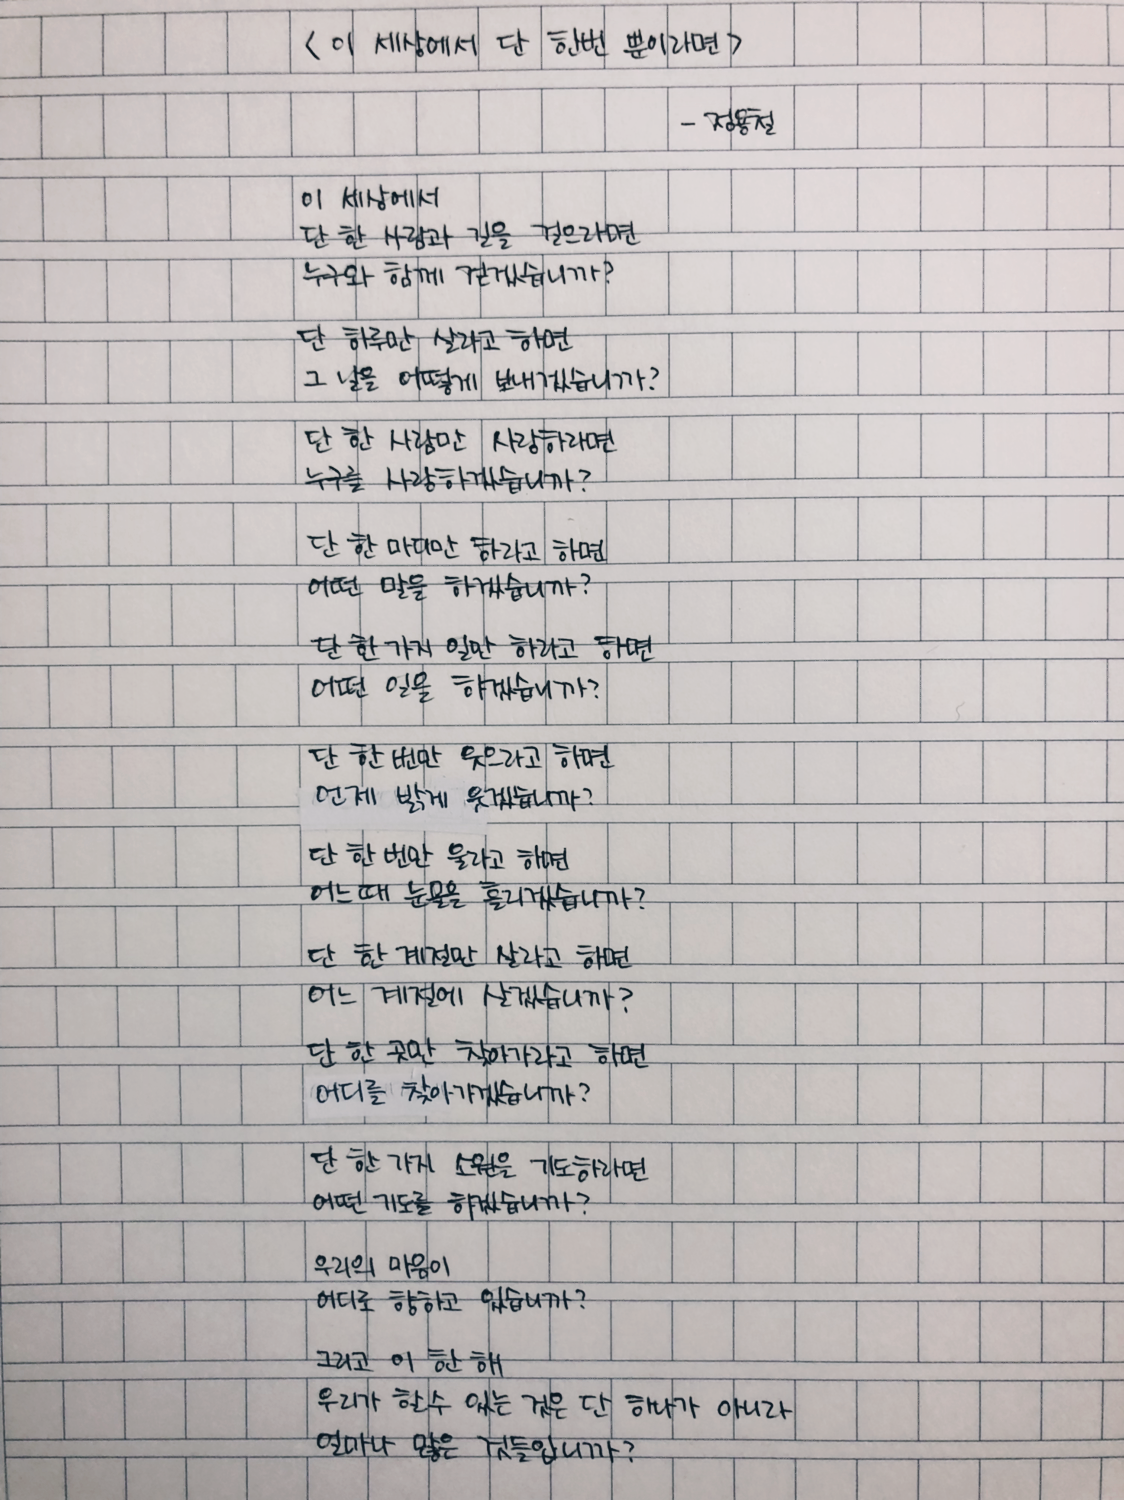 <이 세상에서 단 한번 뿐이라면>
- 정용철
이 세상에서
단 한 사람과 길을 걸으라면
누구와 함께 걷겠습니까?
단 하루만 살라고 하면
그 날을 어떻게 보내겠습니까?
단 한 사람만 사랑하라면
누구를 사랑하겠습니까?
단 한 마디만 하라고 하면
어떤 말을 하겠습니까?
단 한 가지 일만 하라고 하면
어떤 일을 하겠습니까?
단 한 번만 웃으라고 하면
언제 밝게 웃겠습니까?
단 한 번만 울라고 하면
어느때 눈물을 흘리겠습니까?
단 한 계절만 살라고 하면
어느 계절에 살겠습니까?
단 한 곳만 찾아가라고 하면
어디를 찾아가겠습니까?
단 한 가지 소원을 기도하라면
어떤 기도를 하겠습니까?
우리의 마음이
어디로 향하고 있습니까?
그리고 이 한 해
우리가 할수 있는 것은 단 하나가 아니라
얼마나 많은 것들입니까?